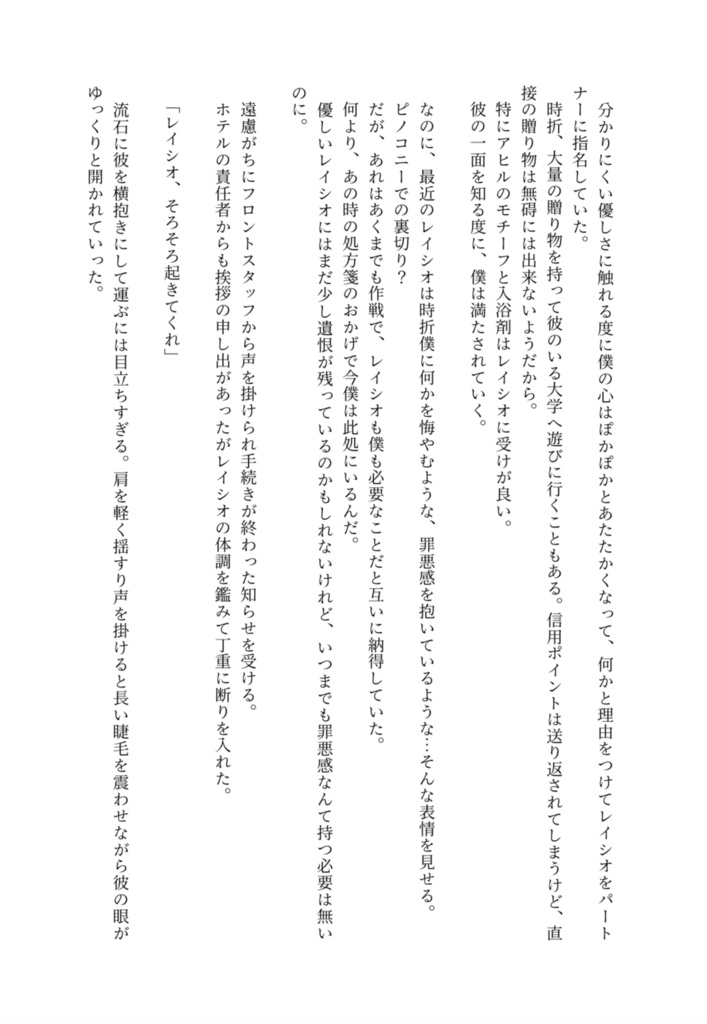 分かりにくい優しさに触れる度に僕の心はぽかぽかとあたたかくなって、何かと理由をつけてレイシオをパート
ナーに指名していた。
時折、大量の贈り物を持って彼のいる大学へ遊びに行くこともある。信用ポイントは送り返されてしまうけど、直
接の贈り物は無碍には出来ないようだから。
特にアヒルのモチーフと入浴剤はレイシオに受けが良い。
彼の一面を知る度に、僕は満たされていく。
なのに、最近のレイシオは時折僕に何かを悔やむような、罪悪感を抱いているような…そんな表情を見せる。
ピノコニーでの裏切り？
だが、あれはあくまでも作戦で、レイシオも僕も必要なことだと互いに納得していた。
何より、あの時の処方箋のおかげで今僕は此処にいるんだ。
優しいレイシオにはまだ少し遺恨が残っているのかもしれないけれど、いつまでも罪悪感なんて持つ必要は無い
のに。
遠慮がちにフロントスタッフから声を掛けられ手続きが終わった知らせを受ける。
ホテルの責任者からも挨拶の申し出があったがレイシオの体調を鑑みて丁重に断りを入れた。
「レイシオ、そろそろ起きてくれ」
流石に彼を横抱きにして運ぶには目立ちすぎる。肩を軽く揺すり声を掛けると長い睫毛を震わせながら彼の眼が
ゆっくりと開かれていった。